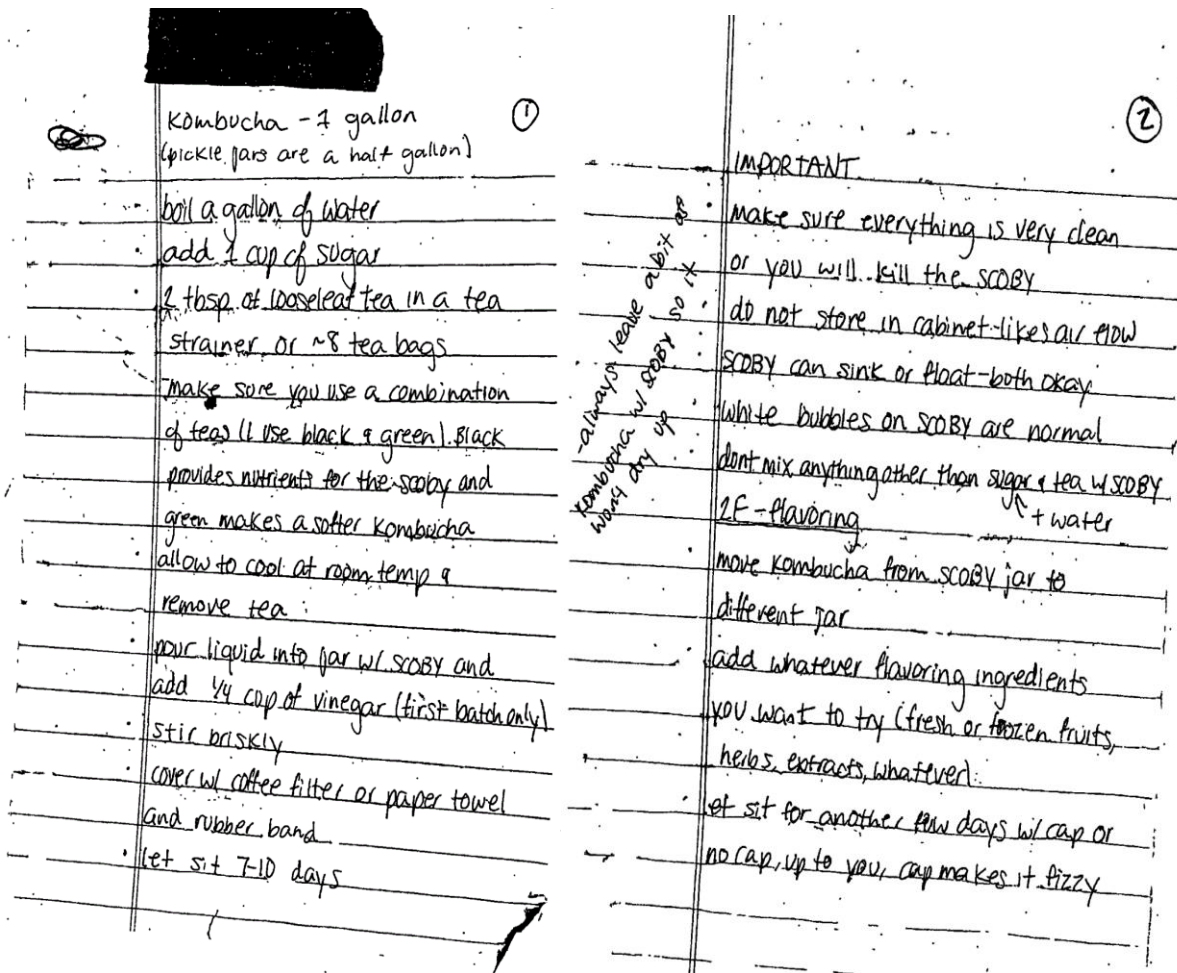 ①
Kombucha - 1 gallon
(pickle jars are a half gallon)
boil a gallon of water
add 1 cup of sugar
2 tbsp of looseleaf tea in a tea
strainer or ~8 tea bags
make sure you use a combination
of teas (I use black & green). Black
provides nutrients for the scoby and
green makes a softer kombucha
allow to cool at room temp &
remove tea
pour liquid into jar w/ SCOBY and
add 1/4 cup of vinegar (first batch only)
stir briskly
cover w/ coffee filter or paper towel
and rubber band
let sit 7-10 days
②
IMPORTANT
make sure everything is very clean
or you will kill the SCOBY
do not store in cabinet-likes air flow
SCOBY can sink or float-both okay
white bubbles on SCOBY are normal
dont mix anything other than sugar & tea w/ SCOBY
+ water
-always leave a bit of
kombucha w/ SCOBY so it
wont dry up
2F-flavoring
move kombucha from SCOBY jar to
different jar
add whatever flavoring ingredients
you want to try (fresh or frozen fruits,
herbs, extracts, whatever)
et sit for another few days w/ cap or
no cap, up to you, cap makes it fizzy